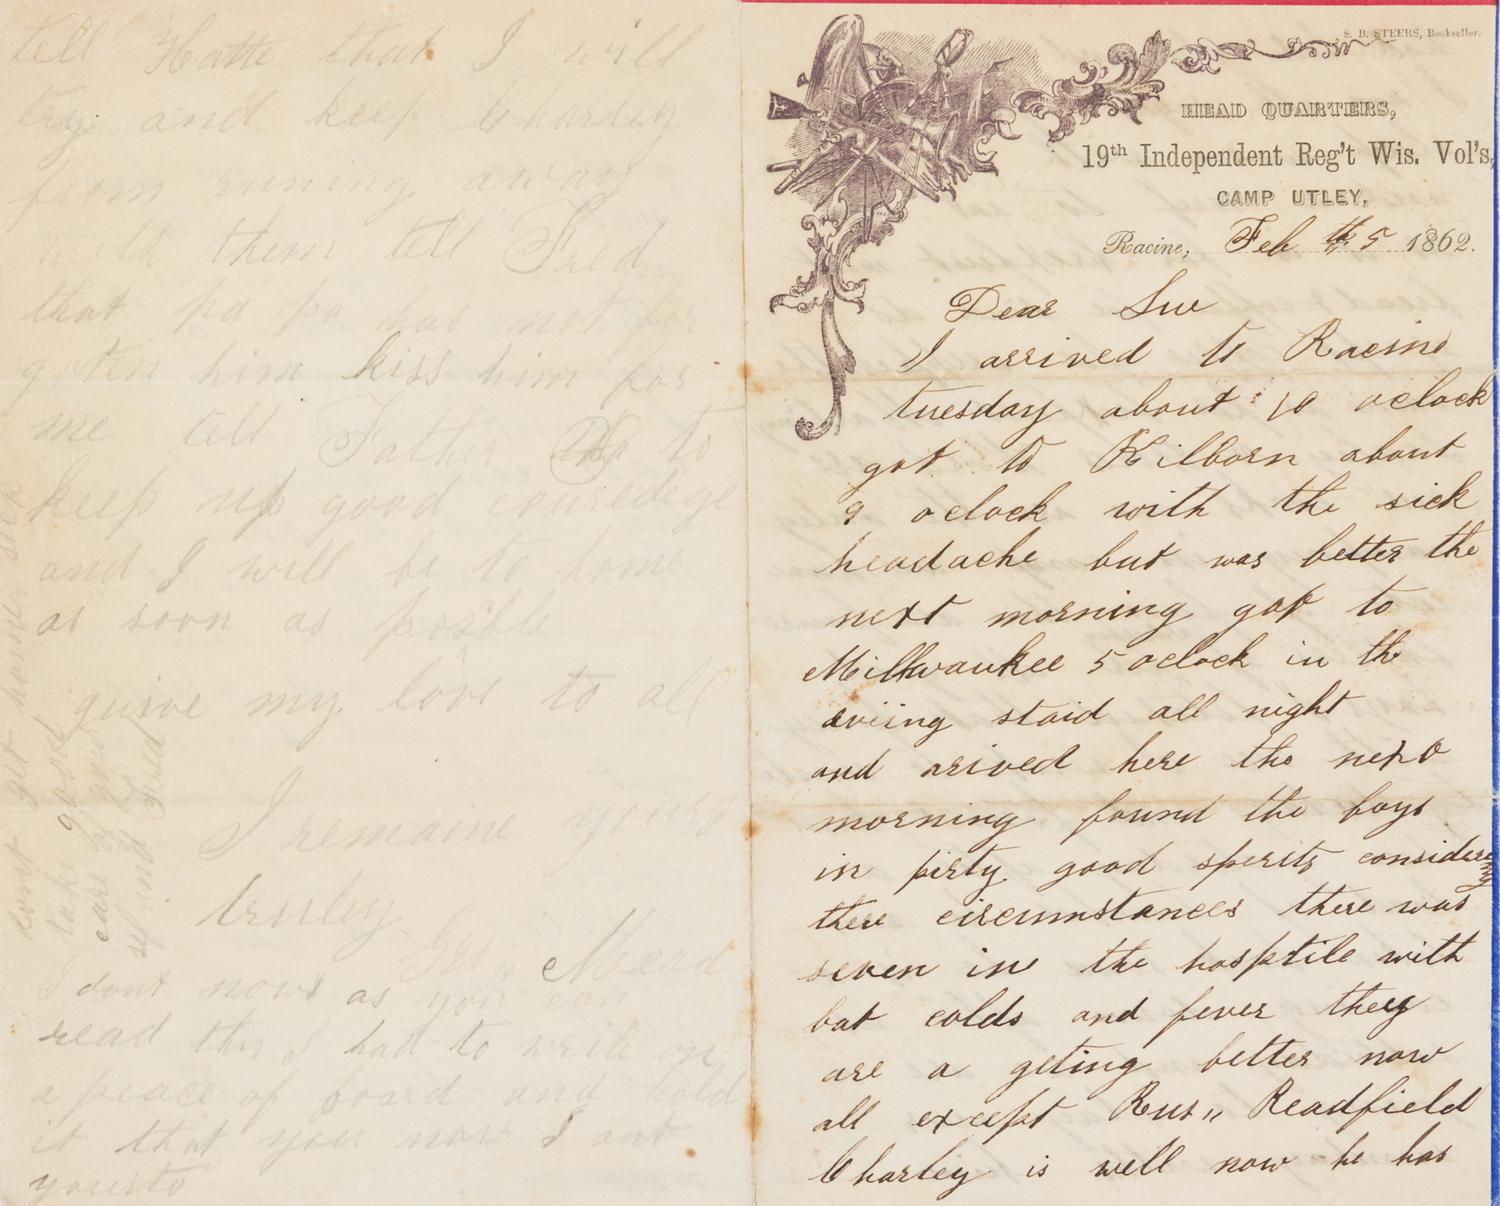 tell Hatte that I will
try and keep Charley
from runing away
with them tell Fred
that pa pa has not for
goten him kiss him for
me tell Father to
keep up good couradege
and I will be to home
as soon as posible
guive my love to all
I remaine yours
truley
Mead
I dont nows as you can
read this I had to write on
a peace of board and hold
it that you now I ant
yousto
dont get home sick
take good
care of your
self and Fred
S. B. STEERS, Bookseller.
HEAD QUARTERS,
19th Independent Reg't Wis. Vol's,
CAMP UTLEY,
Racine, Feb th 5 1862.
Dear Sue
I arrived to Racine
tuesday about 10 oclock
got to Kilborn about
9 oclock with the sick
headache but was better the
next morning got to
Millwaukee 5 oclock in the
eviing staid all night
and arived here the next
morning found the boys
in pirty good sperits considering
there circumstances there was
seven in the hosptile with
bat colds and fever they
are a geting better now
all except Rus,, Readfield
Charley is well now he has